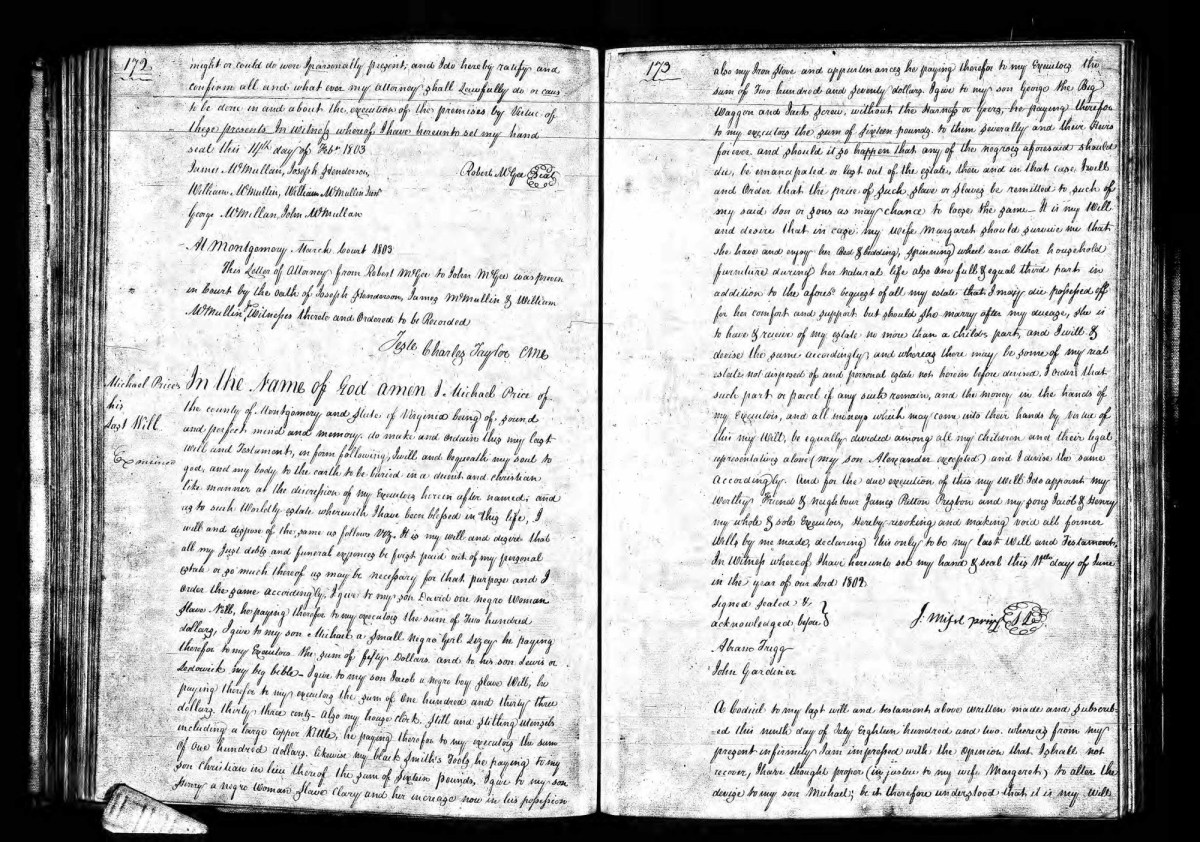 172
might or could do were I personally present; and I do hereby ratify and
confirm all and what ever my attorney shall Lawfully do or caus
to be done in and about the execution of the premises by Virtue of
these presents In witness whereof I have hereunto set my hand
seal this 14th day of Febr 1803
James McMullan, Joseph Henderson,
Robert McGee Seal
William McMullin, William McMullin Junr
George McMullan, John McMullan
At Montgomery March Court 1803
This Letter of Attorney from Robert McGee to John McGee was proven
in Court by the oath of Joseph Henderson, James McMullin & William
McMullin, Witnesses thereto and Ordered to be Recorded
Teste Charles Taylor CMC
Michael Price's
his
Last Will
Examined
In the Name of God amen I Michael Price of
the county of Montgomery and State of Virginia being of sound
and perfect mind and memory, do make and ordain this my last
will and Testament, in form following, I will and bequeath my soul to
god, and my body to the earth to be buried in a decent and christian
like manner at the discretion of my Executors herein after named; and
as to such Worldly estate wherewith I have been blessed in this life, I
will and dispose of the same as follows Viz. It is my will and desire that
all my Just debts and funeral expences be first paid out of my personal
estate or so much thereof as may be necessary for that purpose and I
order the same accordingly. I give to my son David one negro Woman
Slave Nell, he paying therefor to my executors the sum of Two hundred
dollars, I give to my son Michael a small negro Girl Lezey he paying
therefor to my Executors the sum of fifty Dollars. and to his son Lewis or
Lodowick my big bible - I give to my son Jacob a negro boy slave Will, he
paying therefor to my executors the sum of One hundred and thirty three
dollars thirty three cents - also my house clock, Still and stilling utensils
including a large copper Kittle, he paying therefor to my executors the sum
of One hundred dollars. likewise my black Smith's Tools, he paying to my
son Christian in lieu thereof the sum of Sixteen pounds, I give to my son
Henry a negro Woman Slave Clary and her increase now in his possession
173
also my Iron Stove and appurtenances he paying therefor to my Executors the
sum of Two hundred and Seventy dollars. I give to my son George the Big
Waggon and Jack Screw, without the Harness or Geers, he paying therefor
to my executors the sum of Sixteen pounds, to them severally and their Heirs
forever. and should it so happen that any of the negroes aforesaid should
die, be emancipated or lost out of the estate, then and in that case, I will
and Order that the price of such, slave or slaves be remitted to such of
my said son or sons as may chance to loose the same - It is my Will
and desire that in case my wife Margaret should survive me that
she have and enjoy her Bed & bedding, spinning wheel and other household
furniture during her natural life also one full & equal third part in
addition to the afores. bequest of all my estate that I may die possessed off
for her comfort and support but should she marry after my decease, she is
to have & receive of my estate no more than a childs part, and I will &
devise the same accordingly and whereas there may be some of my real
estate not disposed of and personal estate not herein before devised, I order that
such part or parcel if any such remain, and the money in the hands of
my Executors, and all moneys which may come into their hands by Virtue of
this my Will, be equally divided among all my children and their legal
representatives alone (my son Alexander excepted) and I devise the same
accordingly. And for the due execution of this my Will I do appoint my
worthy Friend & neighbour James Patton Preston and my sons Jacob & Henry
my whole & sole Executors, Hereby revoking and making void all former
Wills by me made, declaring this only to be my last Will and Testament.
In Witness whereof I have hereunto set my hand & seal this day of June
in the year of our Lord 1802
Signed Sealed &
acknowledged before
Abram Trigg
John Gardiner
A Codicil to my last will and testament above written made and subscrib-
ed this ninth day of July Eighteen hundred and two. whereas from my
present infirmity I am impressed with the Opinion that I shall not
recover, I have thought proper (in justice to my wife Margeret) to alter the
devise to my son Michael; be it therefore understood that it is my Will